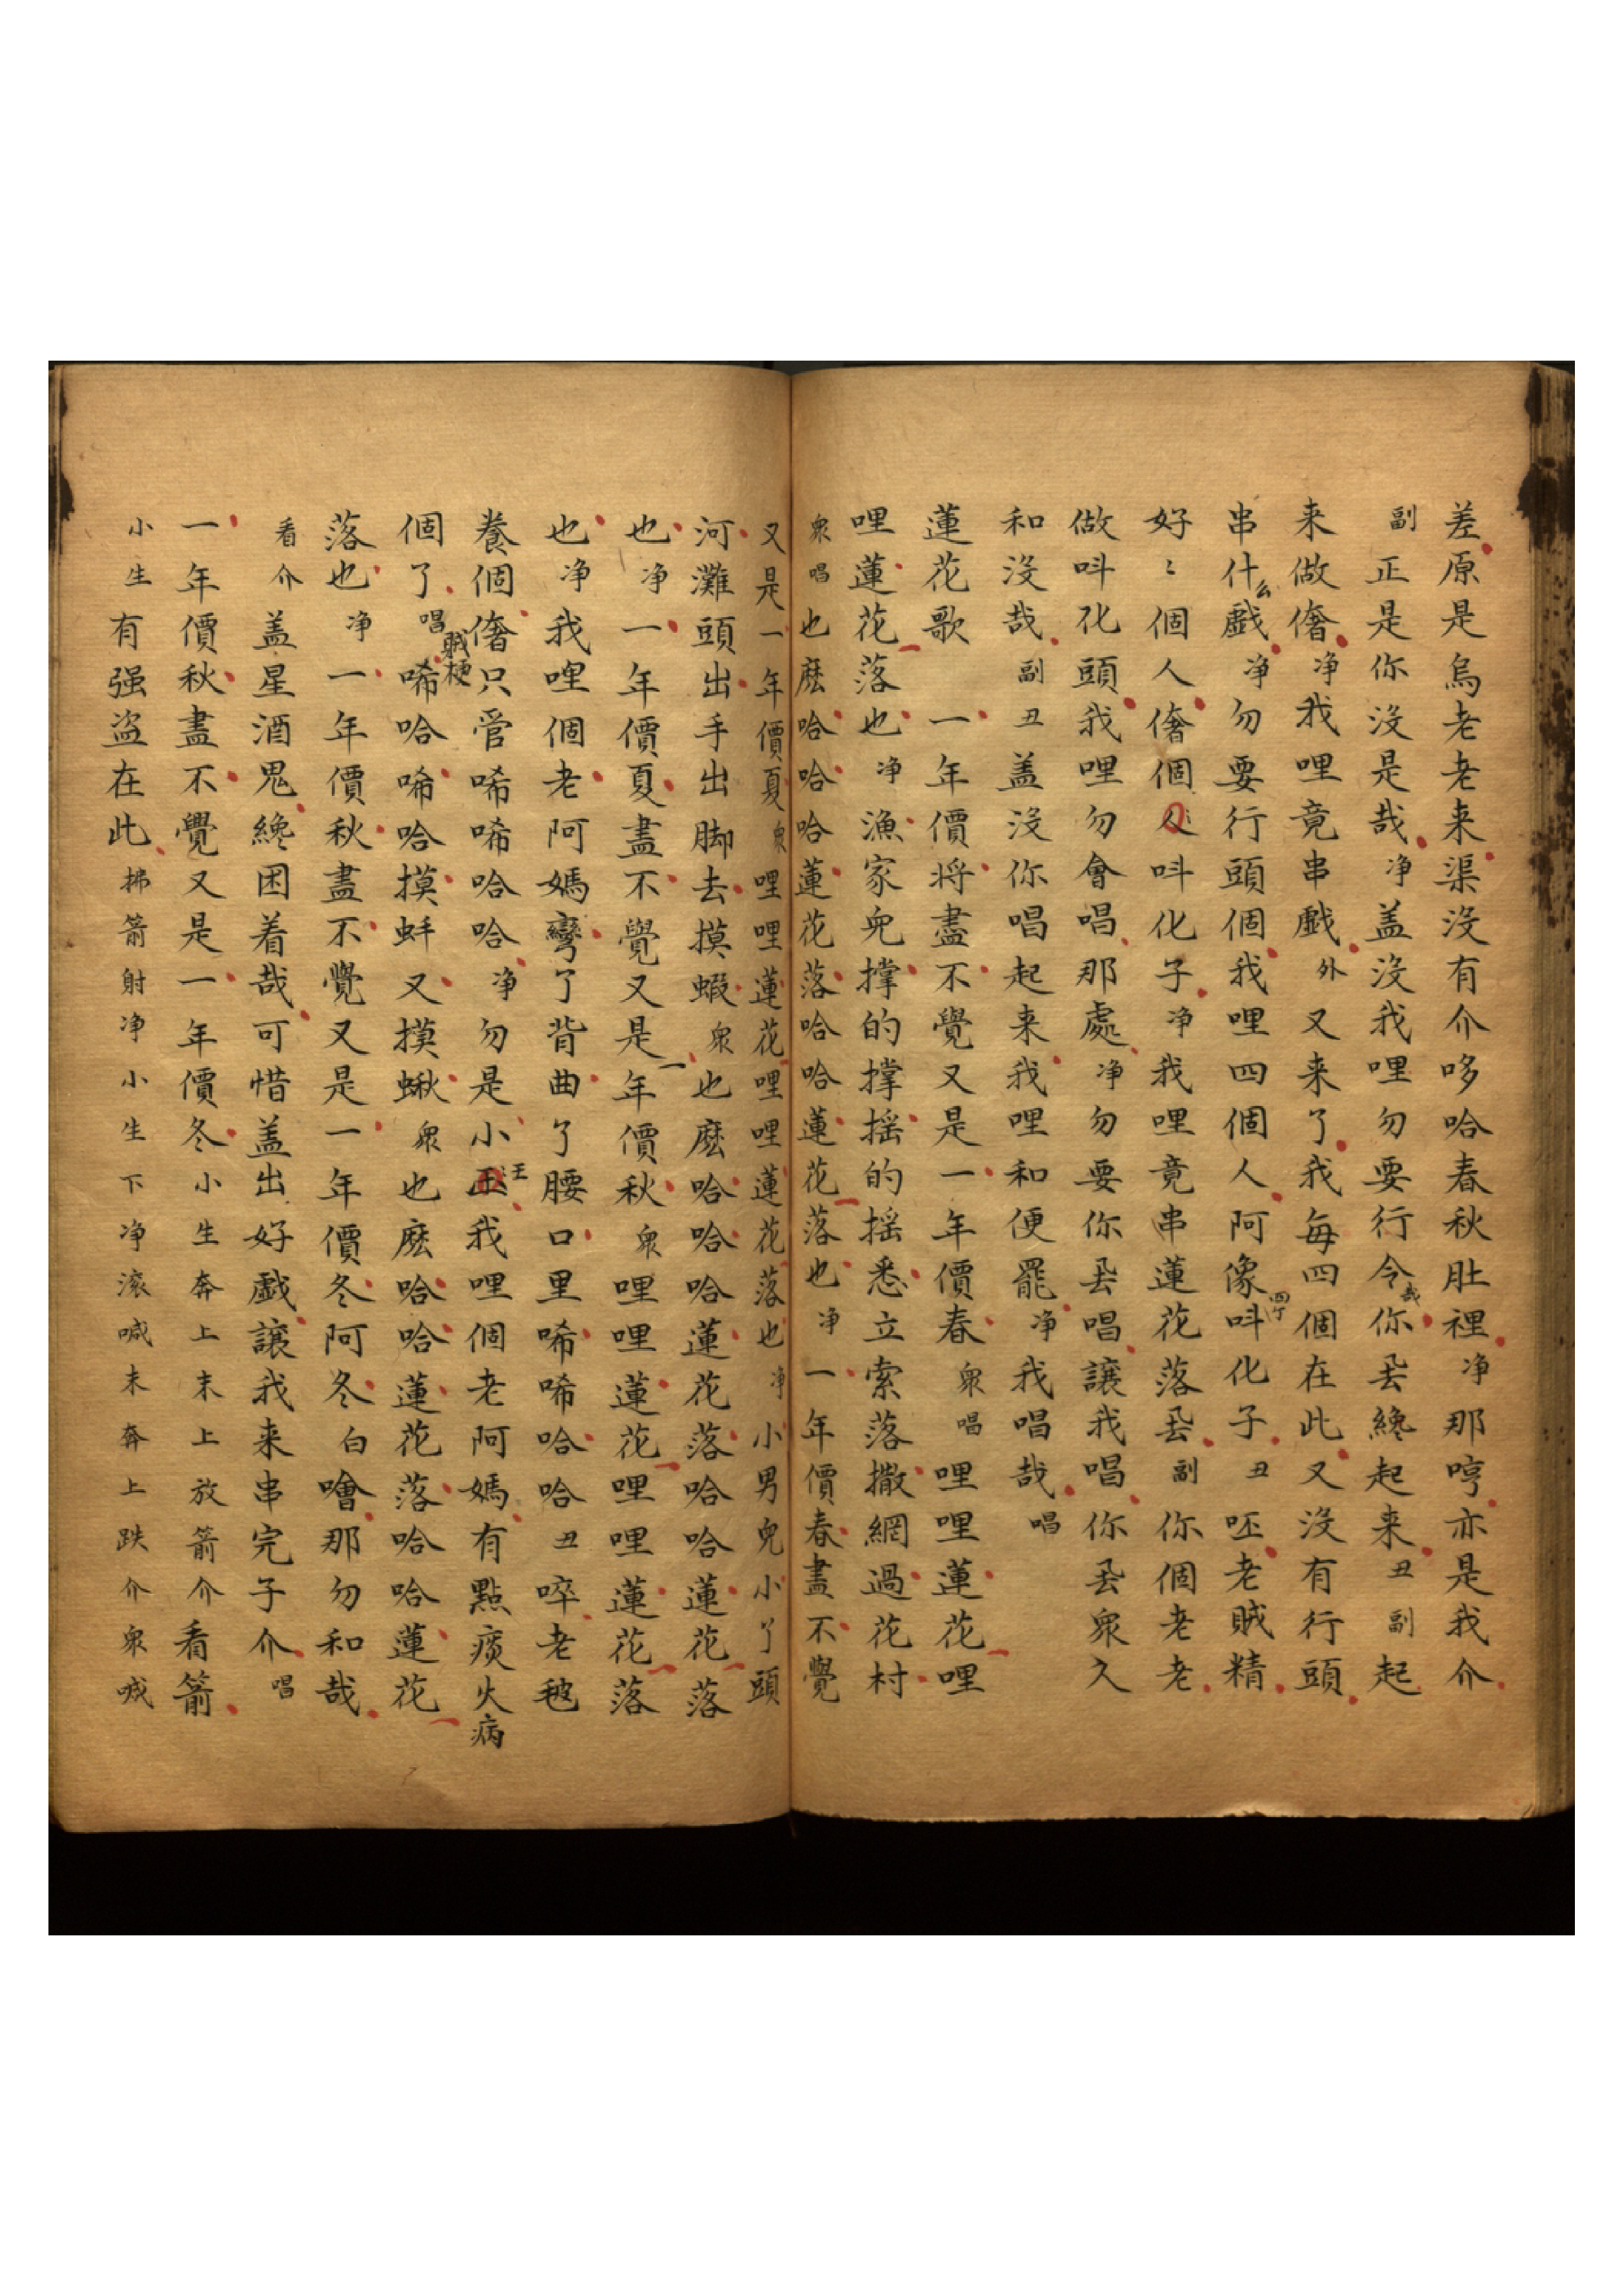 差原是烏老老来渠沒有介哆哈春秋肚裡净那哼亦是我介
副正是你沒是哉净盖沒我哩勿要行令哉你厾纔起来丑副起
来做傦净我哩竟串戱外又来了我每四個在此又沒有行頭
串什么戱净勿要行頭個我哩四個人阿像四个呌化子丑呸老賊精
好〻個人傦個人呌化子净我哩竟串蓮花落厾副你個老老
做呌化頭我哩勿會唱那處净勿要你厾唱讓我唱你厾衆久
和沒哉副丑盖沒你唱起来我哩和便罷净我唱哉唱
蓮花歌一年價将盡不覺又是一年價春衆唱哩哩蓮花哩
哩蓮花落也净漁家兒撑的撑摇的摇悉立索落撒網過花村
衆唱也麽哈哈哈蓮花落哈哈蓮花落也净一年價春盡不覺
又是一年價夏衆哩哩蓮花哩哩蓮花落也净小男兒小丫頭
河灘頭出手出脚去摸蝦衆也麽哈哈哈蓮花落哈哈蓮花落
也净一年價夏盡不覺又是一年價秋衆哩哩蓮花哩哩蓮花落
也净我哩個老阿媽彎了背曲了腰口里唏唏哈哈丑啐老㲠
養個傦只管唏唏哈哈净勿是小王王我哩個老阿媽有點痰火病
個了唱賊梗唏哈唏哈摸蚌又摸蝌衆也麽哈哈蓮花落哈哈蓮花
落也净一年價秋盡不覺又是一年價冬阿冬白噲那勿和哉
看介盖星酒鬼纔困着哉可惜盖出好戱讓我来串完子介唱
一年價秋盡不覺又是一年價冬小生奔上末上放箭介看箭
小生有强盗在此拂箭射净小生下净滚喊末奔上跌介衆喊